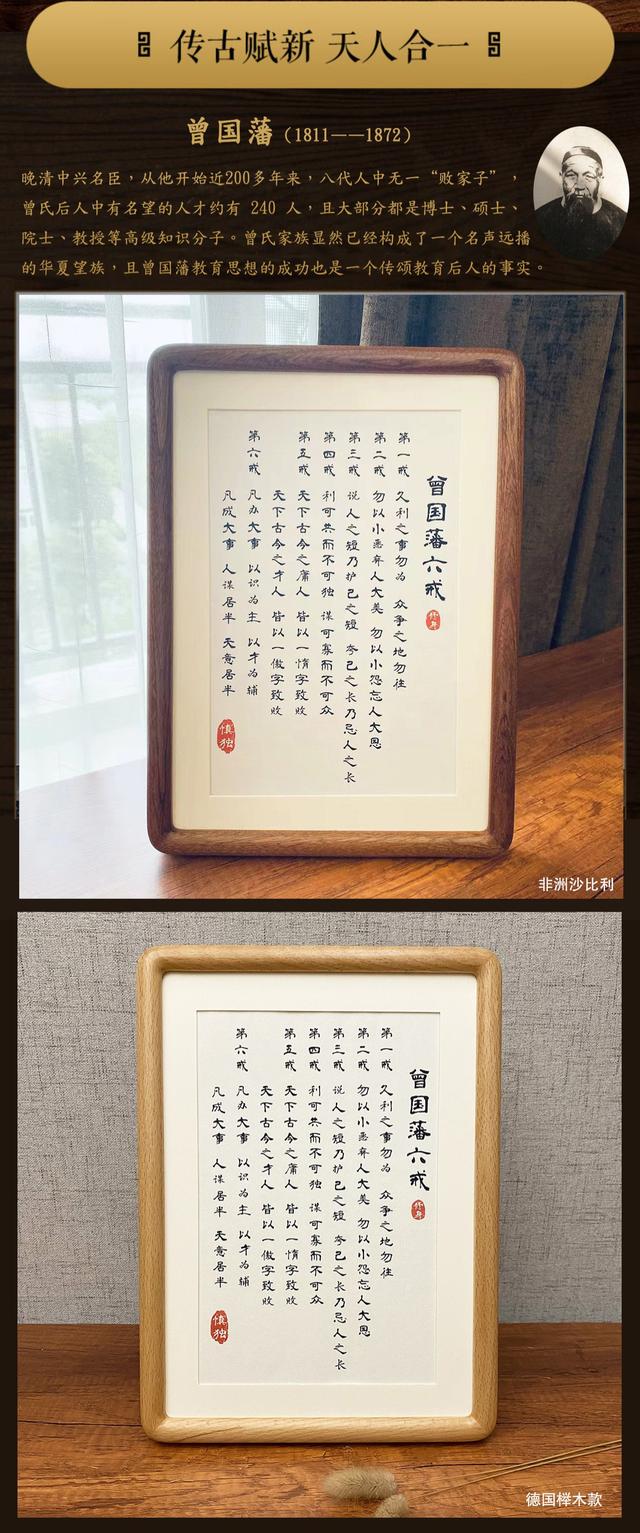 传古赋新 天人合一
曾国藩（1811——1872）
晚清中兴名臣，从他开始近200多年来，八代人中无一“败家子”，
曾氏后人中有名望的人才约有 240 人，且大部分都是博士、硕士、
院士、教授等高级知识分子。曾氏家族显然已经构成了一个名声远播
的华夏望族，且曾国藩教育思想的成功也是一个传颂教育后人的事实。
曾国藩六戒
第一戒 久利之事勿为 众争之地勿往
第二戒 勿以小恶弃人大美 勿以小怨忘人大恩
第三戒 说人之短乃护己之短 夸己之长乃忌人之长
第四戒 利可共而不可独 谋可寡而不可众
第五戒 天下古今之庸人 皆以一惰字致败
天下古今之才人 皆以一傲字致败
第六戒 凡办大事 以识为主 以才为辅
凡成大事 人谋居半 天意居半
慎独
非洲沙比利
曾国藩六戒
第一戒 久利之事勿为 众争之地勿往
第二戒 勿以小恶弃人大美 勿以小怨忘人大恩
第三戒 说人之短乃护己之短 夸己之长乃忌人之长
第四戒 利可共而不可独 谋可寡而不可众
第五戒 天下古今之庸人 皆以一惰字致败
天下古今之才人 皆以一傲字致败
第六戒 凡办大事 以识为主 以才为辅
凡成大事 人谋居半 天意居半
慎独
德国榉木款